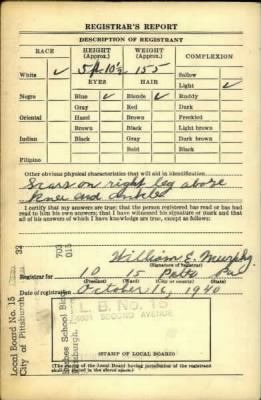 REGISTRAR'S REPORT
DESCRIPTION OF REGISTRANT
RACE HEIGHT (Approx.) WEIGHT (Approx.) COMPLEXION
White ✓ 5 ft 10½ 155 Sallow
EYES HAIR Light ✓
Negro Blue ✓ Blonde ✓ Ruddy
Gray Red Dark
Oriental Hazel Brown Freckled
Brown Black Light brown
Indian Black Gray Dark brown
Bald Black
Filipino
Other obvious physical characteristics that will aid in identification
Scars on right leg above
knee and ankles
I certify that my answers are true; that the person registered has read or has had
read to him his own answers; that I have witnessed his signature or mark and that
all of his answers of which I have knowledge are true, except as follows:
William E. Murphy
(Signature of registrar)
Registrar for 10 15 Pitts Pa
(Precinct) (Ward) (City or county) (State)
Date of registration October 16, 1940
Local Board No. 15 32
City of Pittsburgh 703
015
School
Pittsburgh, P
L. B. No. 15
SECOND AVENUE
(STAMP OF LOCAL BOARD)
(The stamp of the Local Board having jurisdiction of the registrant
shall be placed in the above space)